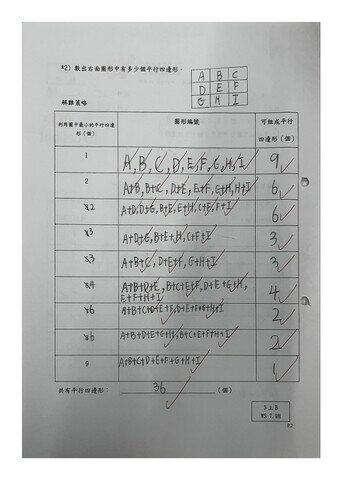 *2) 數出右面圖形中有多少個平行四邊形。
A B C
D E F
G H I
解難策略
利用圖中最小的平行四邊形（個） 圖形編號 可組成平行四邊形（個）
1 A, B, C, D, E, F, G, H, I 9
2 A+B, B+C, D+E, E+F, G+H, H+I 6
2 A+D, D+G, B+E, E+H, C+F, F+I 6
3 A+D+G, B+E+H, C+F+I 3
3 A+B+C, D+E+F, G+H+I 3
4 A+B+D+E, B+C+E+F, D+E+G+H,
E+F+H+I 4
6 A+B+C+D+E+F, D+E+F+G+H+I 2
6 A+B+D+E+G+H, B+C+E+F+H+I 2
9 A+B+C+D+E+F+G+H+I 1
共有平行四邊形： 36 （個）
3上B
WS 7.9B
P2